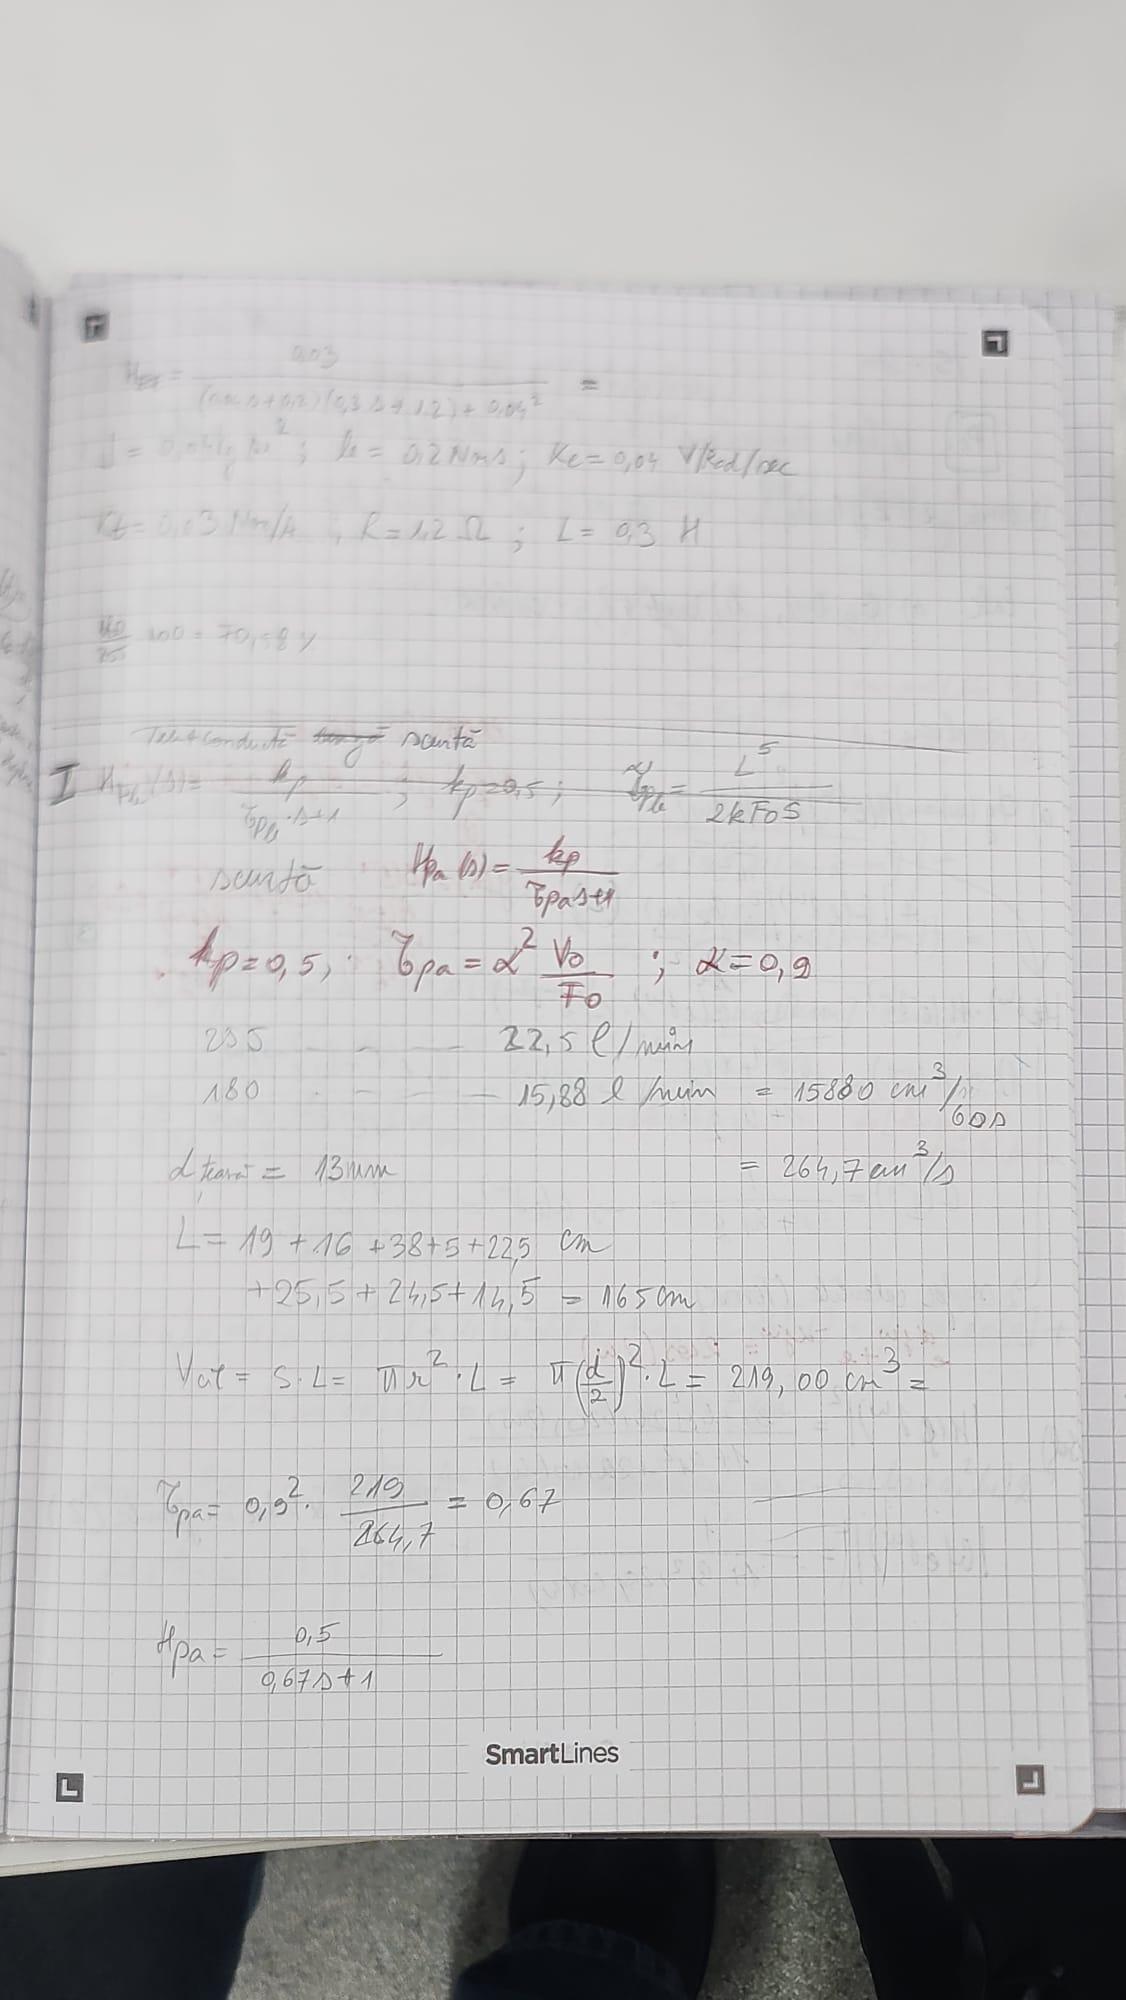 = 0,03 / ( s+0,2)(0,3 s+1,2)+ 0,04² =
J = 0,0 kg m²; b = 0,2 Nms; Ke = 0,04 V/rad/sec
Kt = 0,03 Nm/A, R = 1,2 Ω; L = 0,3 H
100 = 70,58 %
conductă lungă scurtă
I H (s) = kp / τpb·s+1; kp = 0,5; τpb = L S / 2kF0S
scurtă Hpa(s) = kp / τpa s+1
kp = 0,5; τpa = α² V0 / F0; α = 0,9
255 - - - 22,5 l/min
180 - - - 15,88 l/min = 15880 cm³/60s
d țeavă = 13mm = 264,7 cm³/s
L = 19 + 16 + 38 + 5 + 22,5 cm
+ 25,5 + 24,5 + 14,5 = 165 cm
Vcil = S·L = πr²·L = π(d/2)²·L = 219,00 cm³ =
τpa = 0,9² · 219 / 264,7 = 0,67
Hpa = 0,5 / 0,67s+1
SmartLines